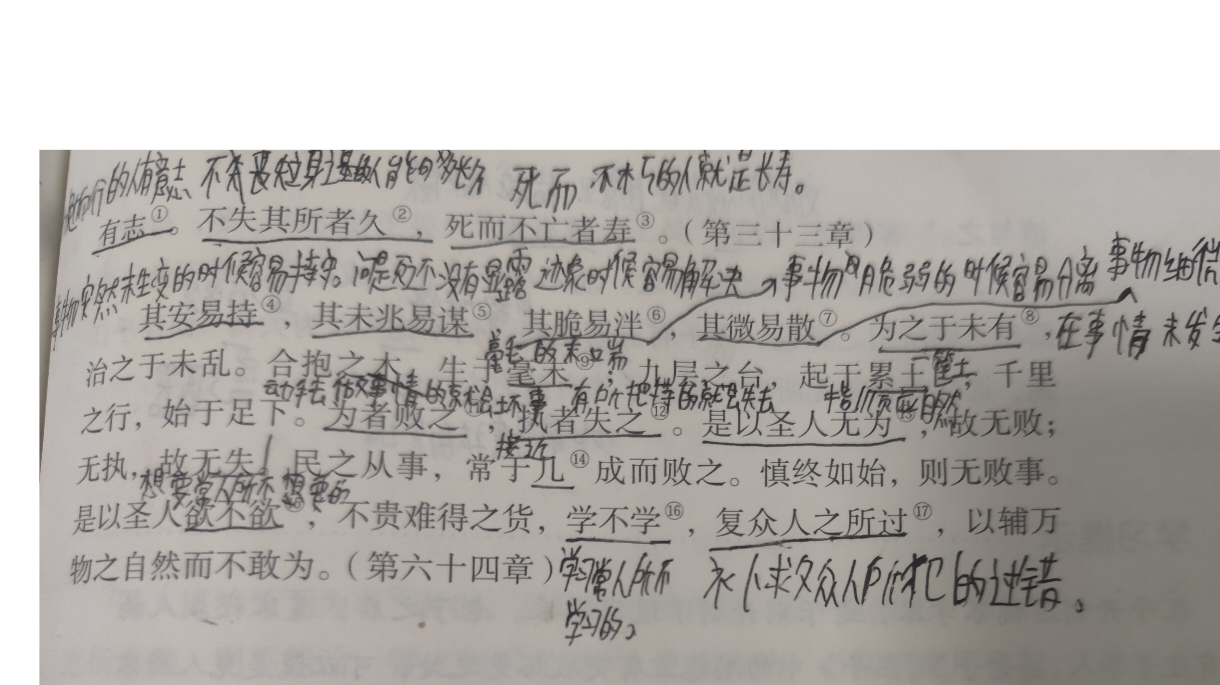 的人有意志 不失丧 死而不朽的人就是长寿。
有志①。不失其所者久②，死而不亡者寿③。（第三十三章）
事物安然未生变的时候容易持守。问题还没有显露迹象时候容易解决 事物脆弱的时候容易分离 事物细微
其安易持④，其未兆易谋⑤，其脆易泮⑥，其微易散⑦。为之于未有⑧，
在事情未发生
治之于未乱。合抱之木，生于毫末⑨；九层之台，起于累土，千里
毫毛的末端 一筐土
动手去做事情的就会坏事 有所把持的就会失去 自然
之行，始于足下。为者败之⑪，执者失之⑫。是以圣人无为⑬，故无败；
接近
无执，故无失。民之从事，常于几⑭成而败之。慎终如始，则无败事。
想要常人所不想要的
是以圣人欲不欲⑮，不贵难得之货，学不学⑯，复众人之所过⑰，以辅万
物之自然而不敢为。（第六十四章）
学习常人所不
学习的。
补求众人所犯的过错。